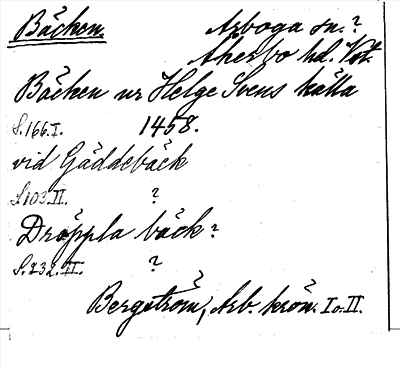 Bäcken.
Arboga sn.?
Åkerbo hd. Vst.
Bäcken ur Helge Svens källa
S.166.I. 1458.
vid Gäddebäck
S.103.II. ?
Dröppla bäck?
S.232.II. ?
Bergström, Arb. krön. I o. II.